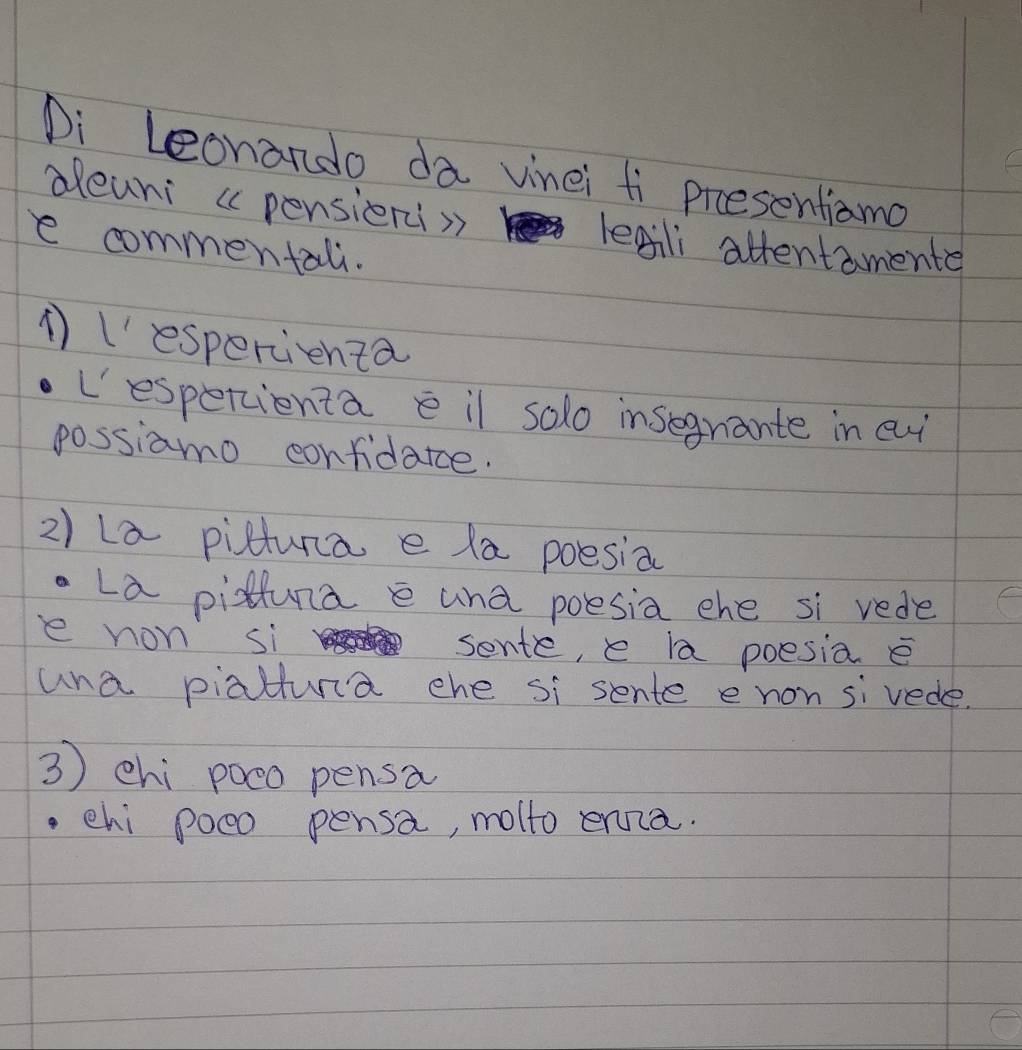 Di Leonardo da Vinci ti presentiamo
alcuni « pensieri » legili attentamente
e commentali.
1) l'esperienza
• L'esperienza è il solo insegnante in cui
possiamo confidare.
2) La pittura e la poesia
• La pittura è una poesia che si vede
e non si sente, e la poesia è
una piattura che si sente e non si vede.
3) chi poco pensa
• chi poco pensa, molto erra.